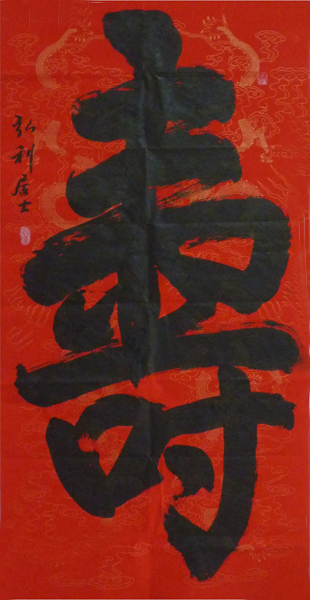 壽
弘利居士